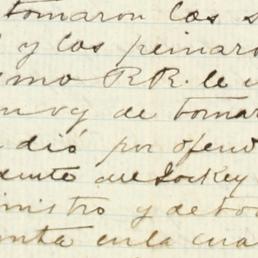 tomaron las s
y las peinaro
mo R.R. le
y de tomar
dió por ofen
dente del Jockey
inistro y de
nta en la cua